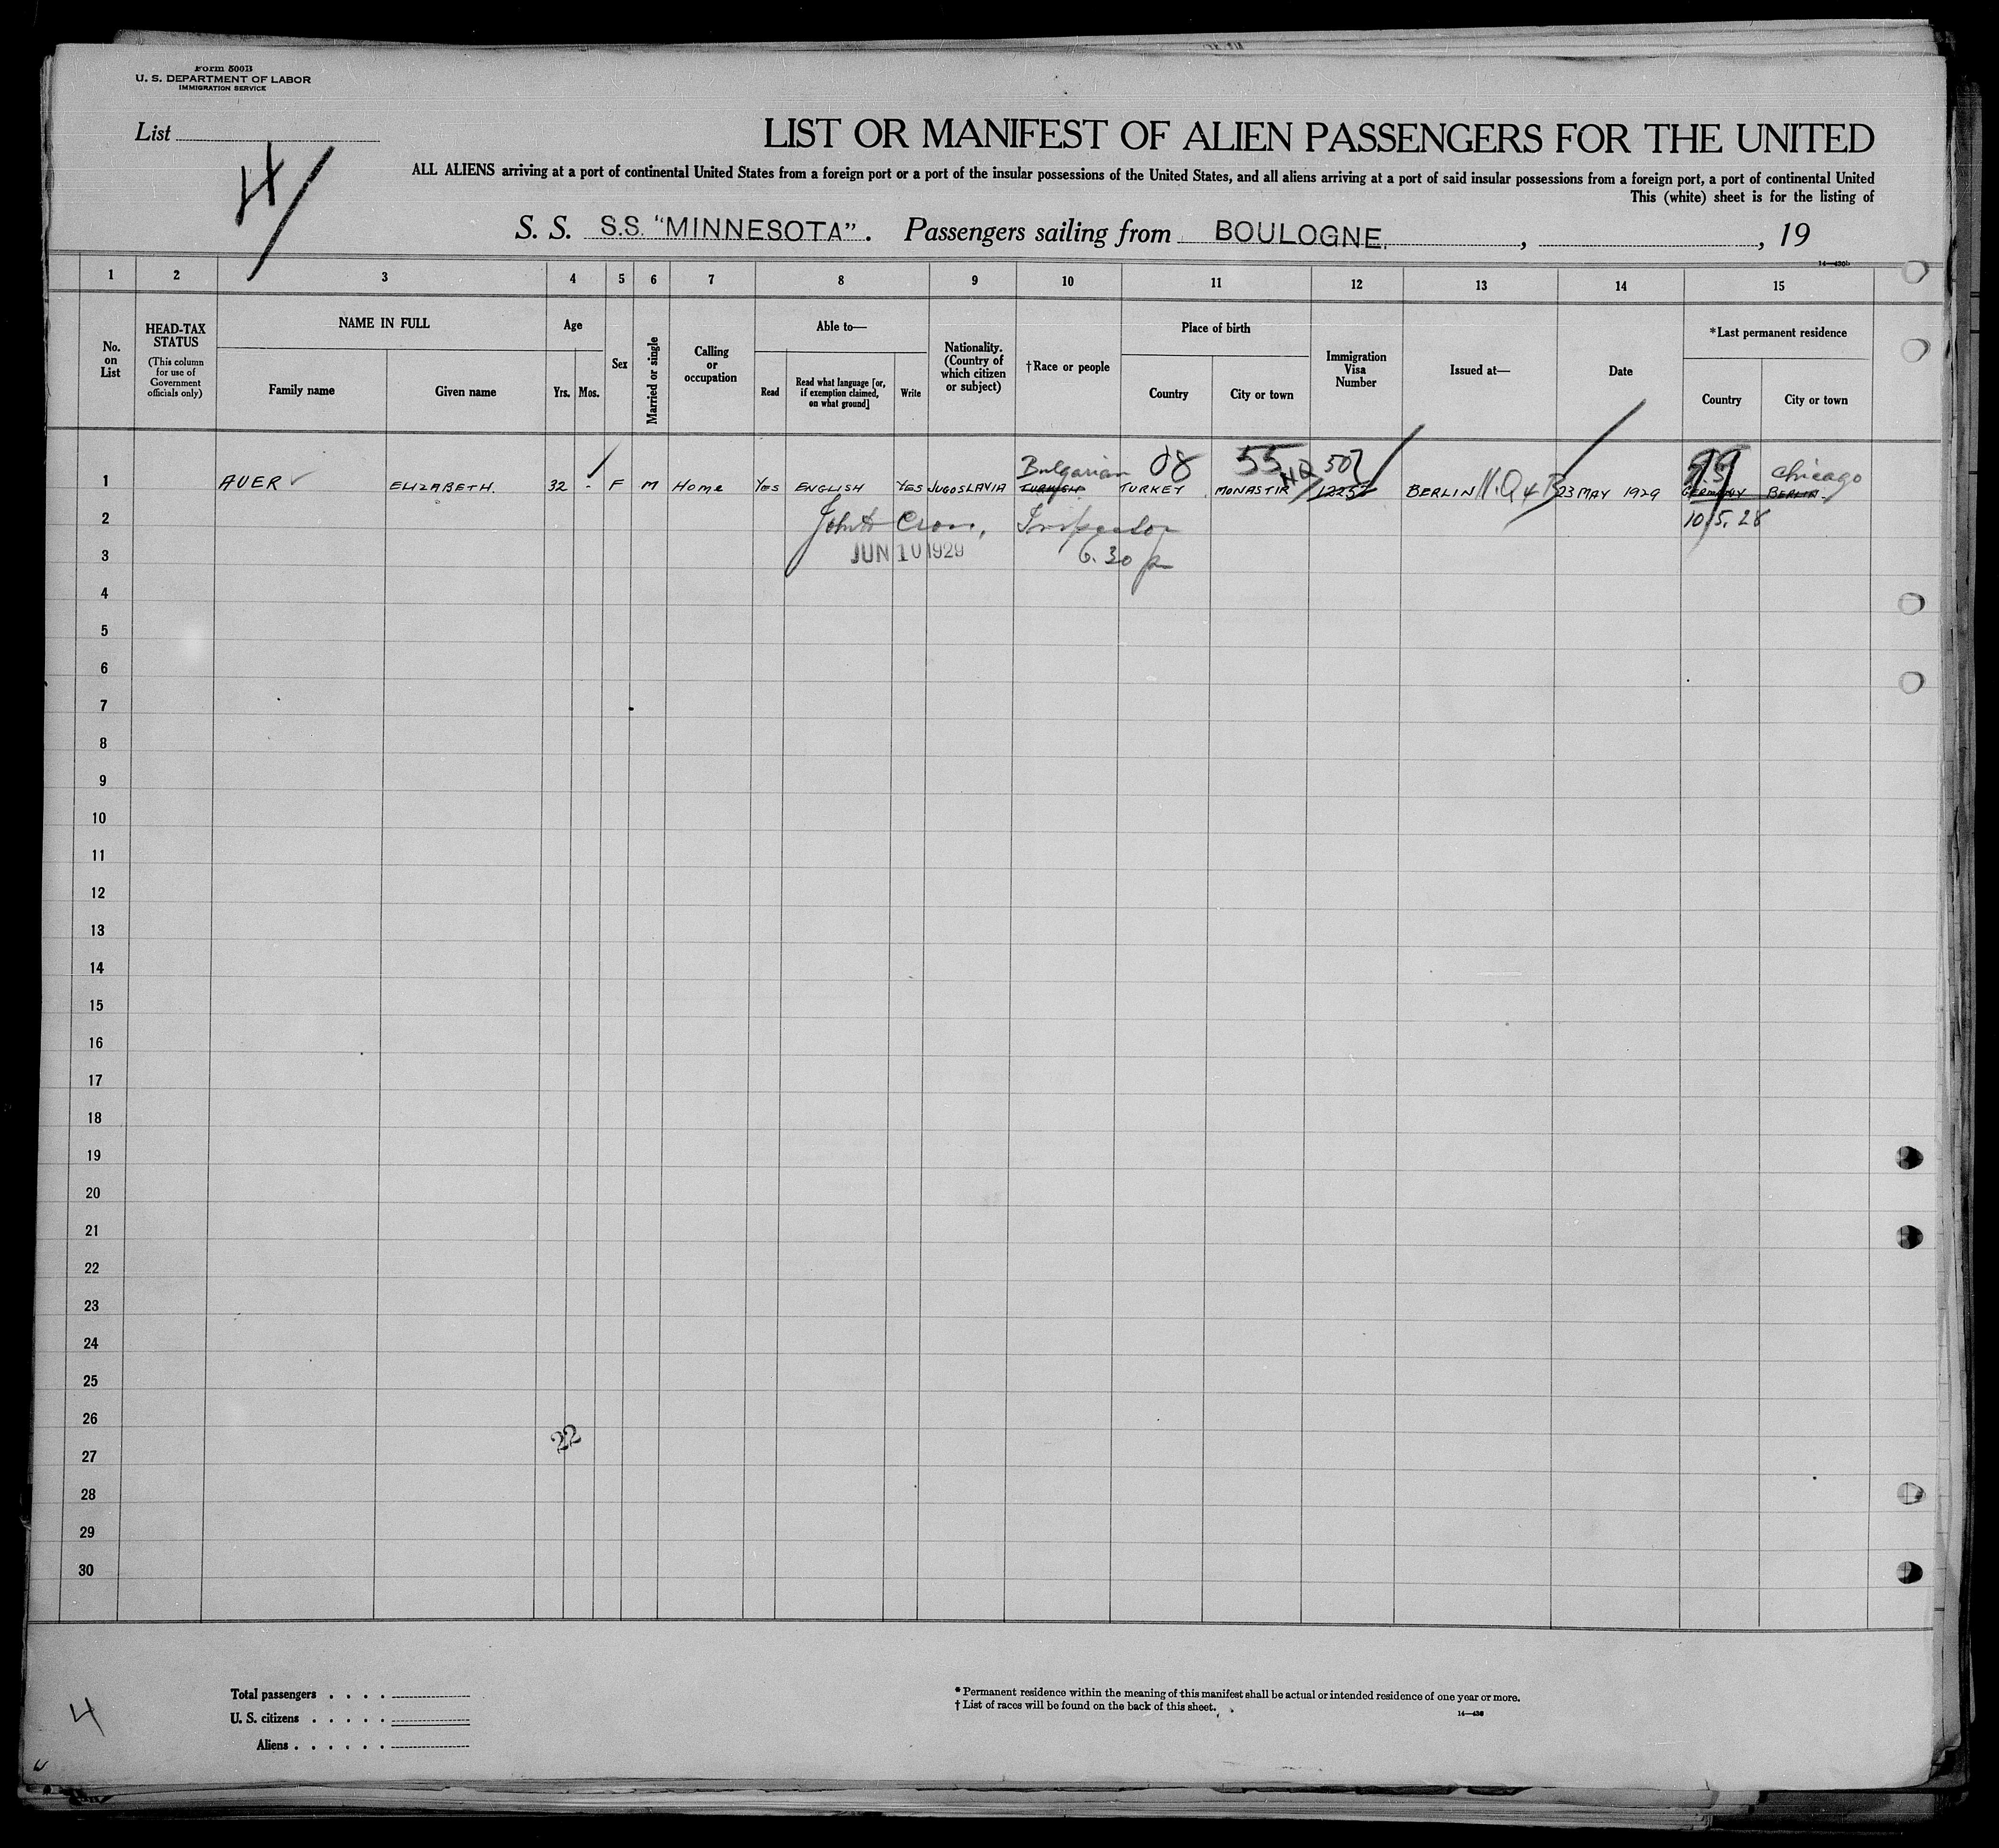 Form 500B
U. S. DEPARTMENT OF LABOR
IMMIGRATION SERVICE
List
4
LIST OR MANIFEST OF ALIEN PASSENGERS FOR THE UNITED
ALL ALIENS arriving at a port of continental United States from a foreign port or a port of the insular possessions of the United States, and all aliens arriving at a port of said insular possessions from a foreign port, a port of continental United
This (white) sheet is for the listing of
S. S. S.S. "MINNESOTA". Passengers sailing from BOULOGNE, , 19
1 2 3 4 5 6 7 8 9 10 11 12 13 14 15
No. on List
HEAD-TAX STATUS (This column for use of Government officials only)
NAME IN FULL
Family name Given name
Age
Yrs. Mos.
Sex
Married or single
Calling or occupation
Able to—
Read
Read what language [or, if exemption claimed, on what ground]
Write
Nationality. (Country of which citizen or subject)
†Race or people
Place of birth
Country City or town
Immigration Visa Number
Issued at—
Date
*Last permanent residence
Country City or town
Bulgarian 08 55 NQ 507 99 Chicago
1 AUER ELIZABETH. 32 - F M Home Yes ENGLISH YES JUGOSLAVIA TURKISH TURKEY MONASTIR BERLIN 23 MAY 1929 GERMANY BERLIN
2 John Inspector 10/5.28
3 JUN 10 1929 6.30 p
4
5
6
7
8
9
10
11
12
13
14
15
16
17
18
19
20
21
22
23
24
25
26
22
27
28
29
30
Total passengers . . . .
U. S. citizens . . . . .
Aliens . . . . . .
* Permanent residence within the meaning of this manifest shall be actual or intended residence of one year or more.
† List of races will be found on the back of this sheet.
14—430
4